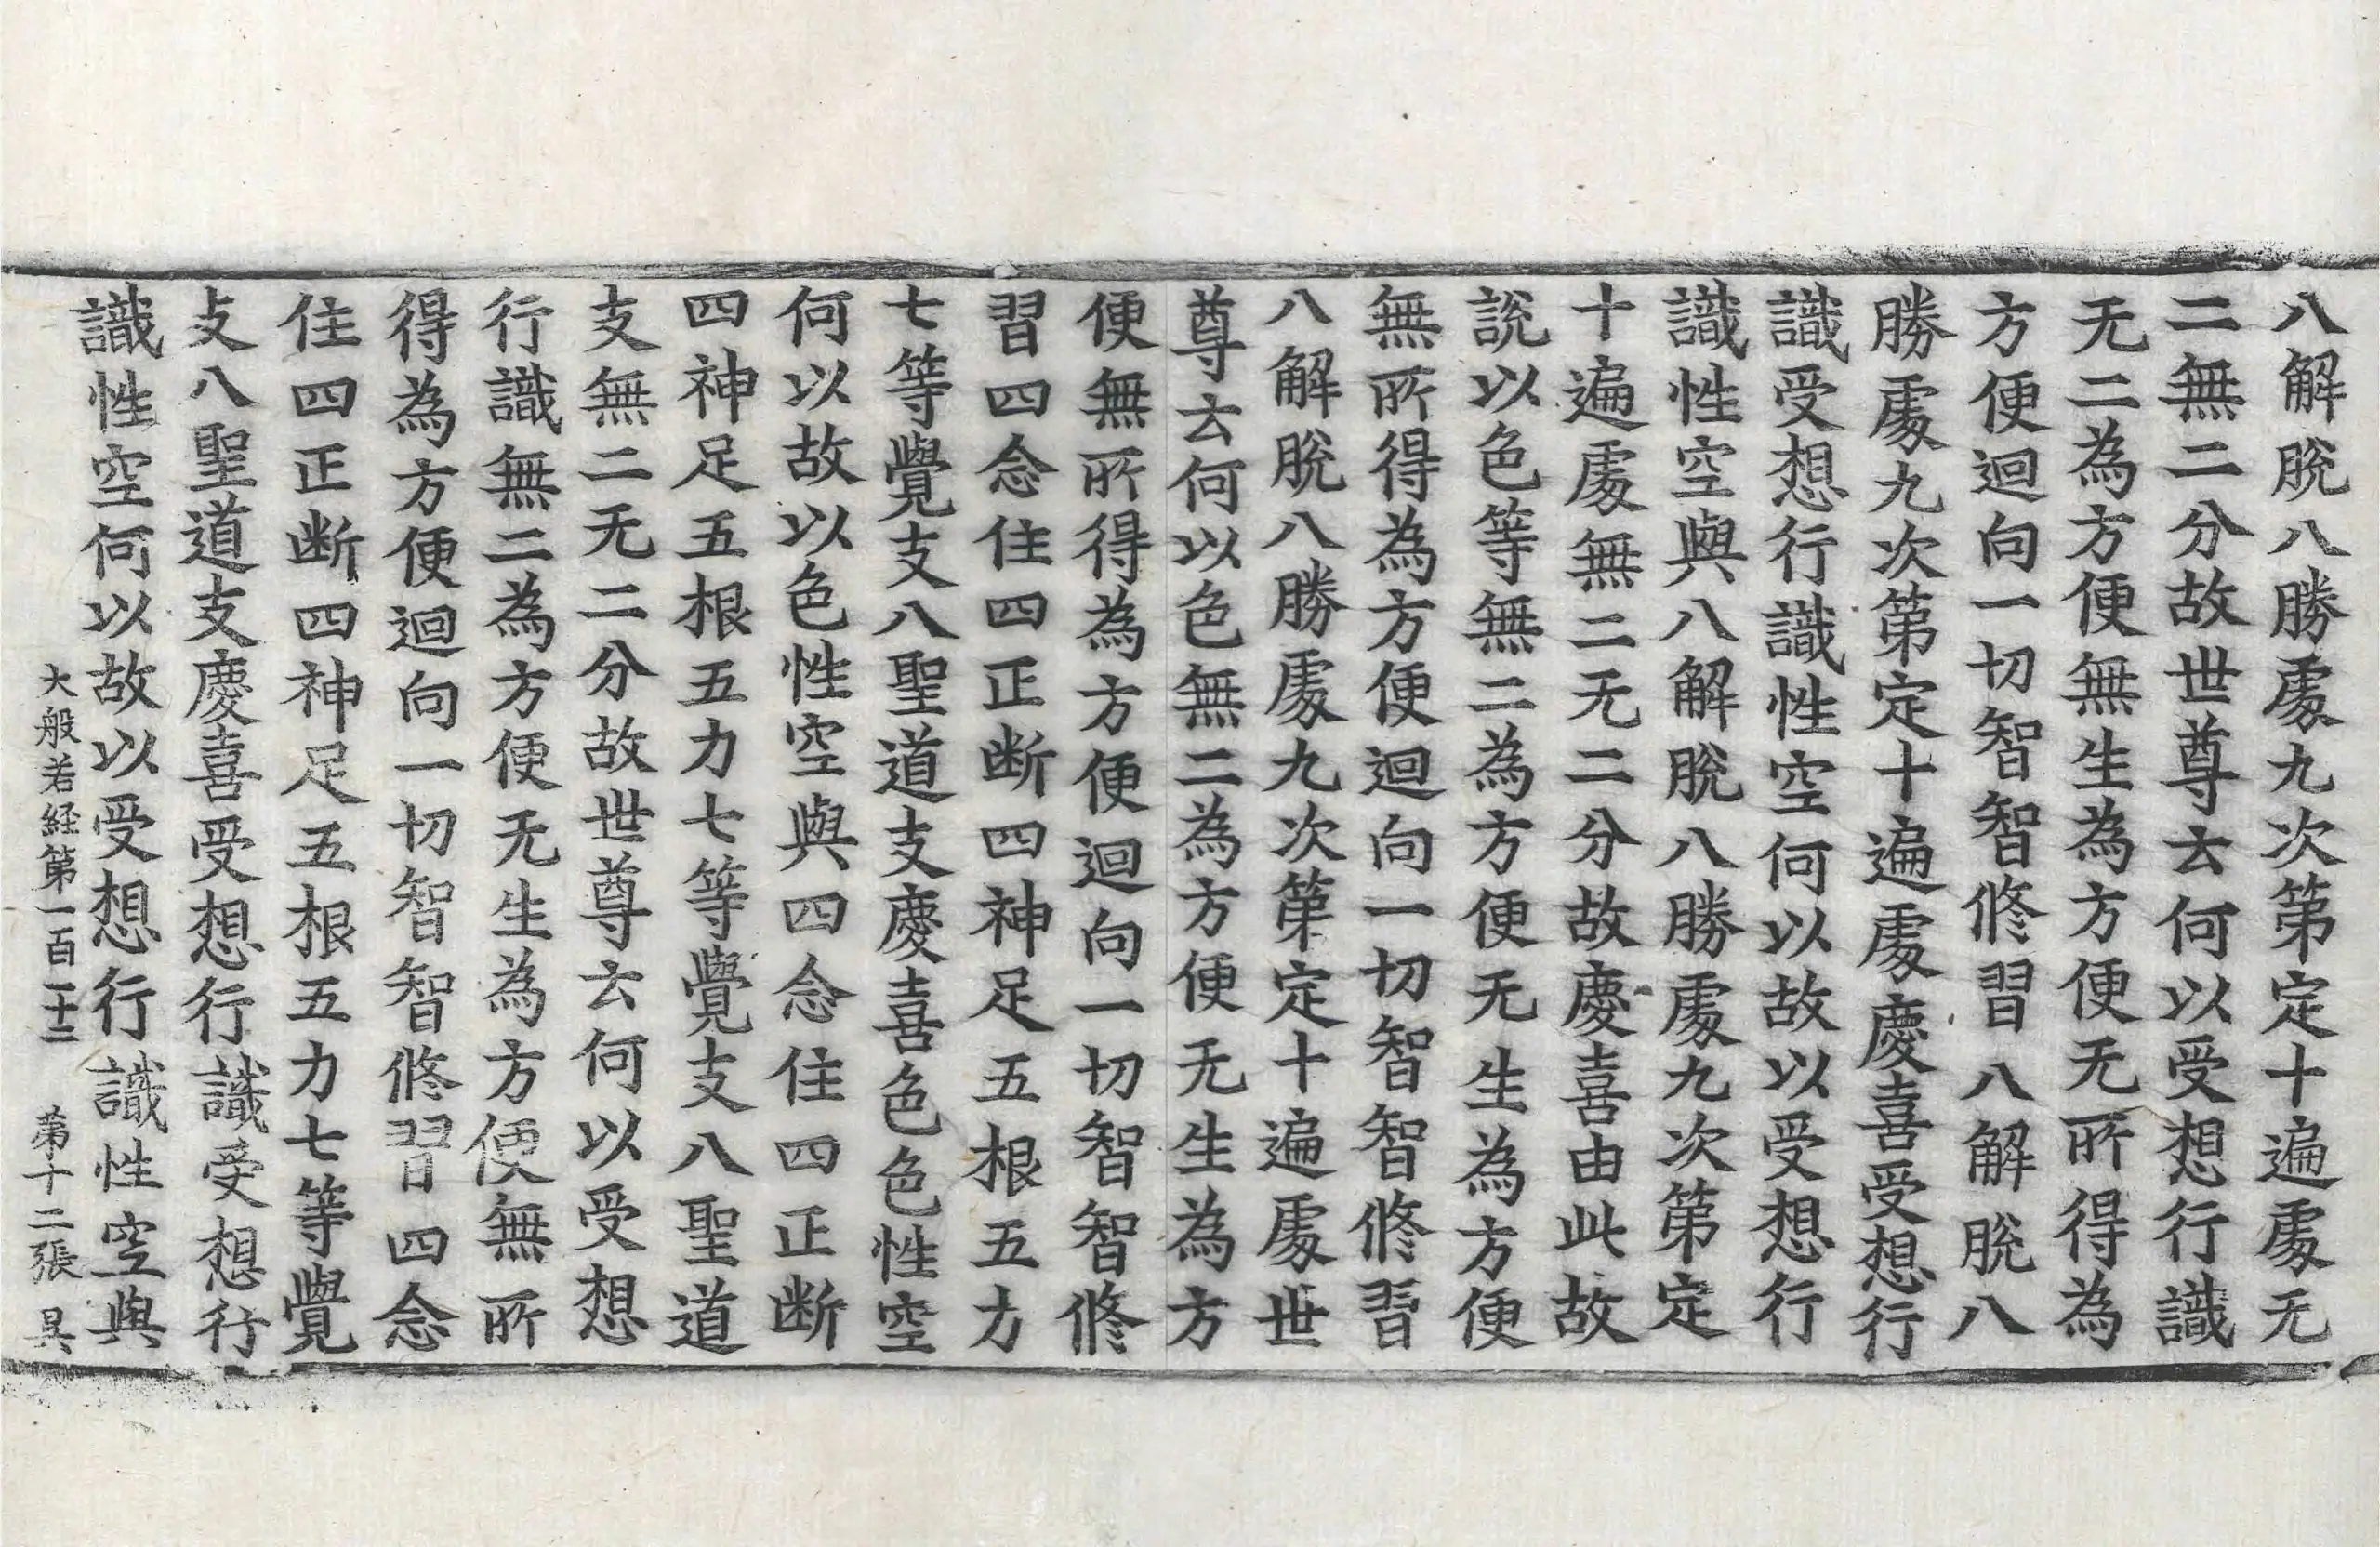 八解脫八勝處九次第定十遍處无
二無二分故世尊云何以受想行識
无二為方便無生為方便无所得為
方便迴向一切智智修習八解脫八
勝處九次第定十遍處慶喜受想行
識受想行識性空何以故以受想行
識性空與八解脫八勝處九次第定
十遍處無二无二分故慶喜由此故
說以色等無二為方便无生為方便
無所得為方便迴向一切智智修習
八解脫八勝處九次第定十遍處世
尊云何以色無二為方便无生為方
便無所得為方便迴向一切智智修
習四念住四正断四神足五根五力
七等覺支八聖道支慶喜色色性空
何以故以色性空與四念住四正断
四神足五根五力七等覺支八聖道
支無二无二分故世尊云何以受想
行識無二為方便无生為方便無所
得為方便迴向一切智智修習四念
住四正断四神足五根五力七等覺
支八聖道支慶喜受想行識受想行
識性空何以故以受想行識性空與
大般若経第一百二十三 第十二張 昃